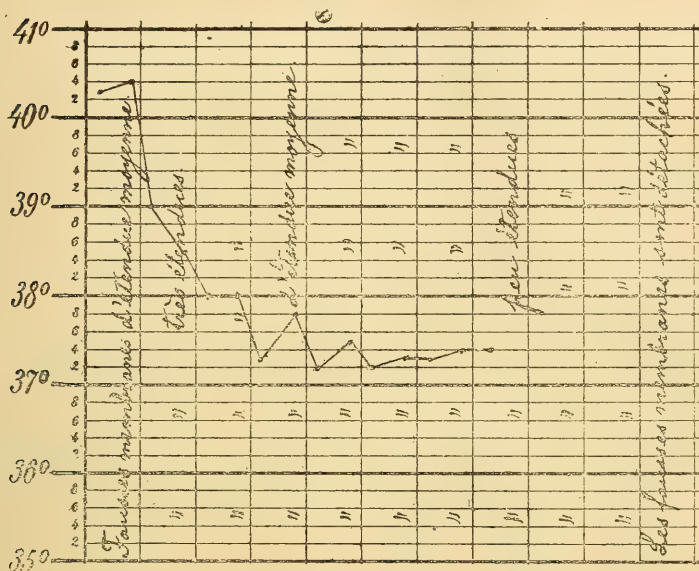 41°
8
6
4
2
40°
8
6
4
2
39°
8
6
4
2
38°
8
6
4
2
37°
8
6
4
2
36°
8
6
4
2
35°
Fausses membranes d'étendue moyenne.
très étendues
" "
" "
d'étendue moyenne.
" " "
" " "
peu étendues
" "
" "
" " " " " " " " "
" " " " " " " " "
Les fausses membranes sont détachées.